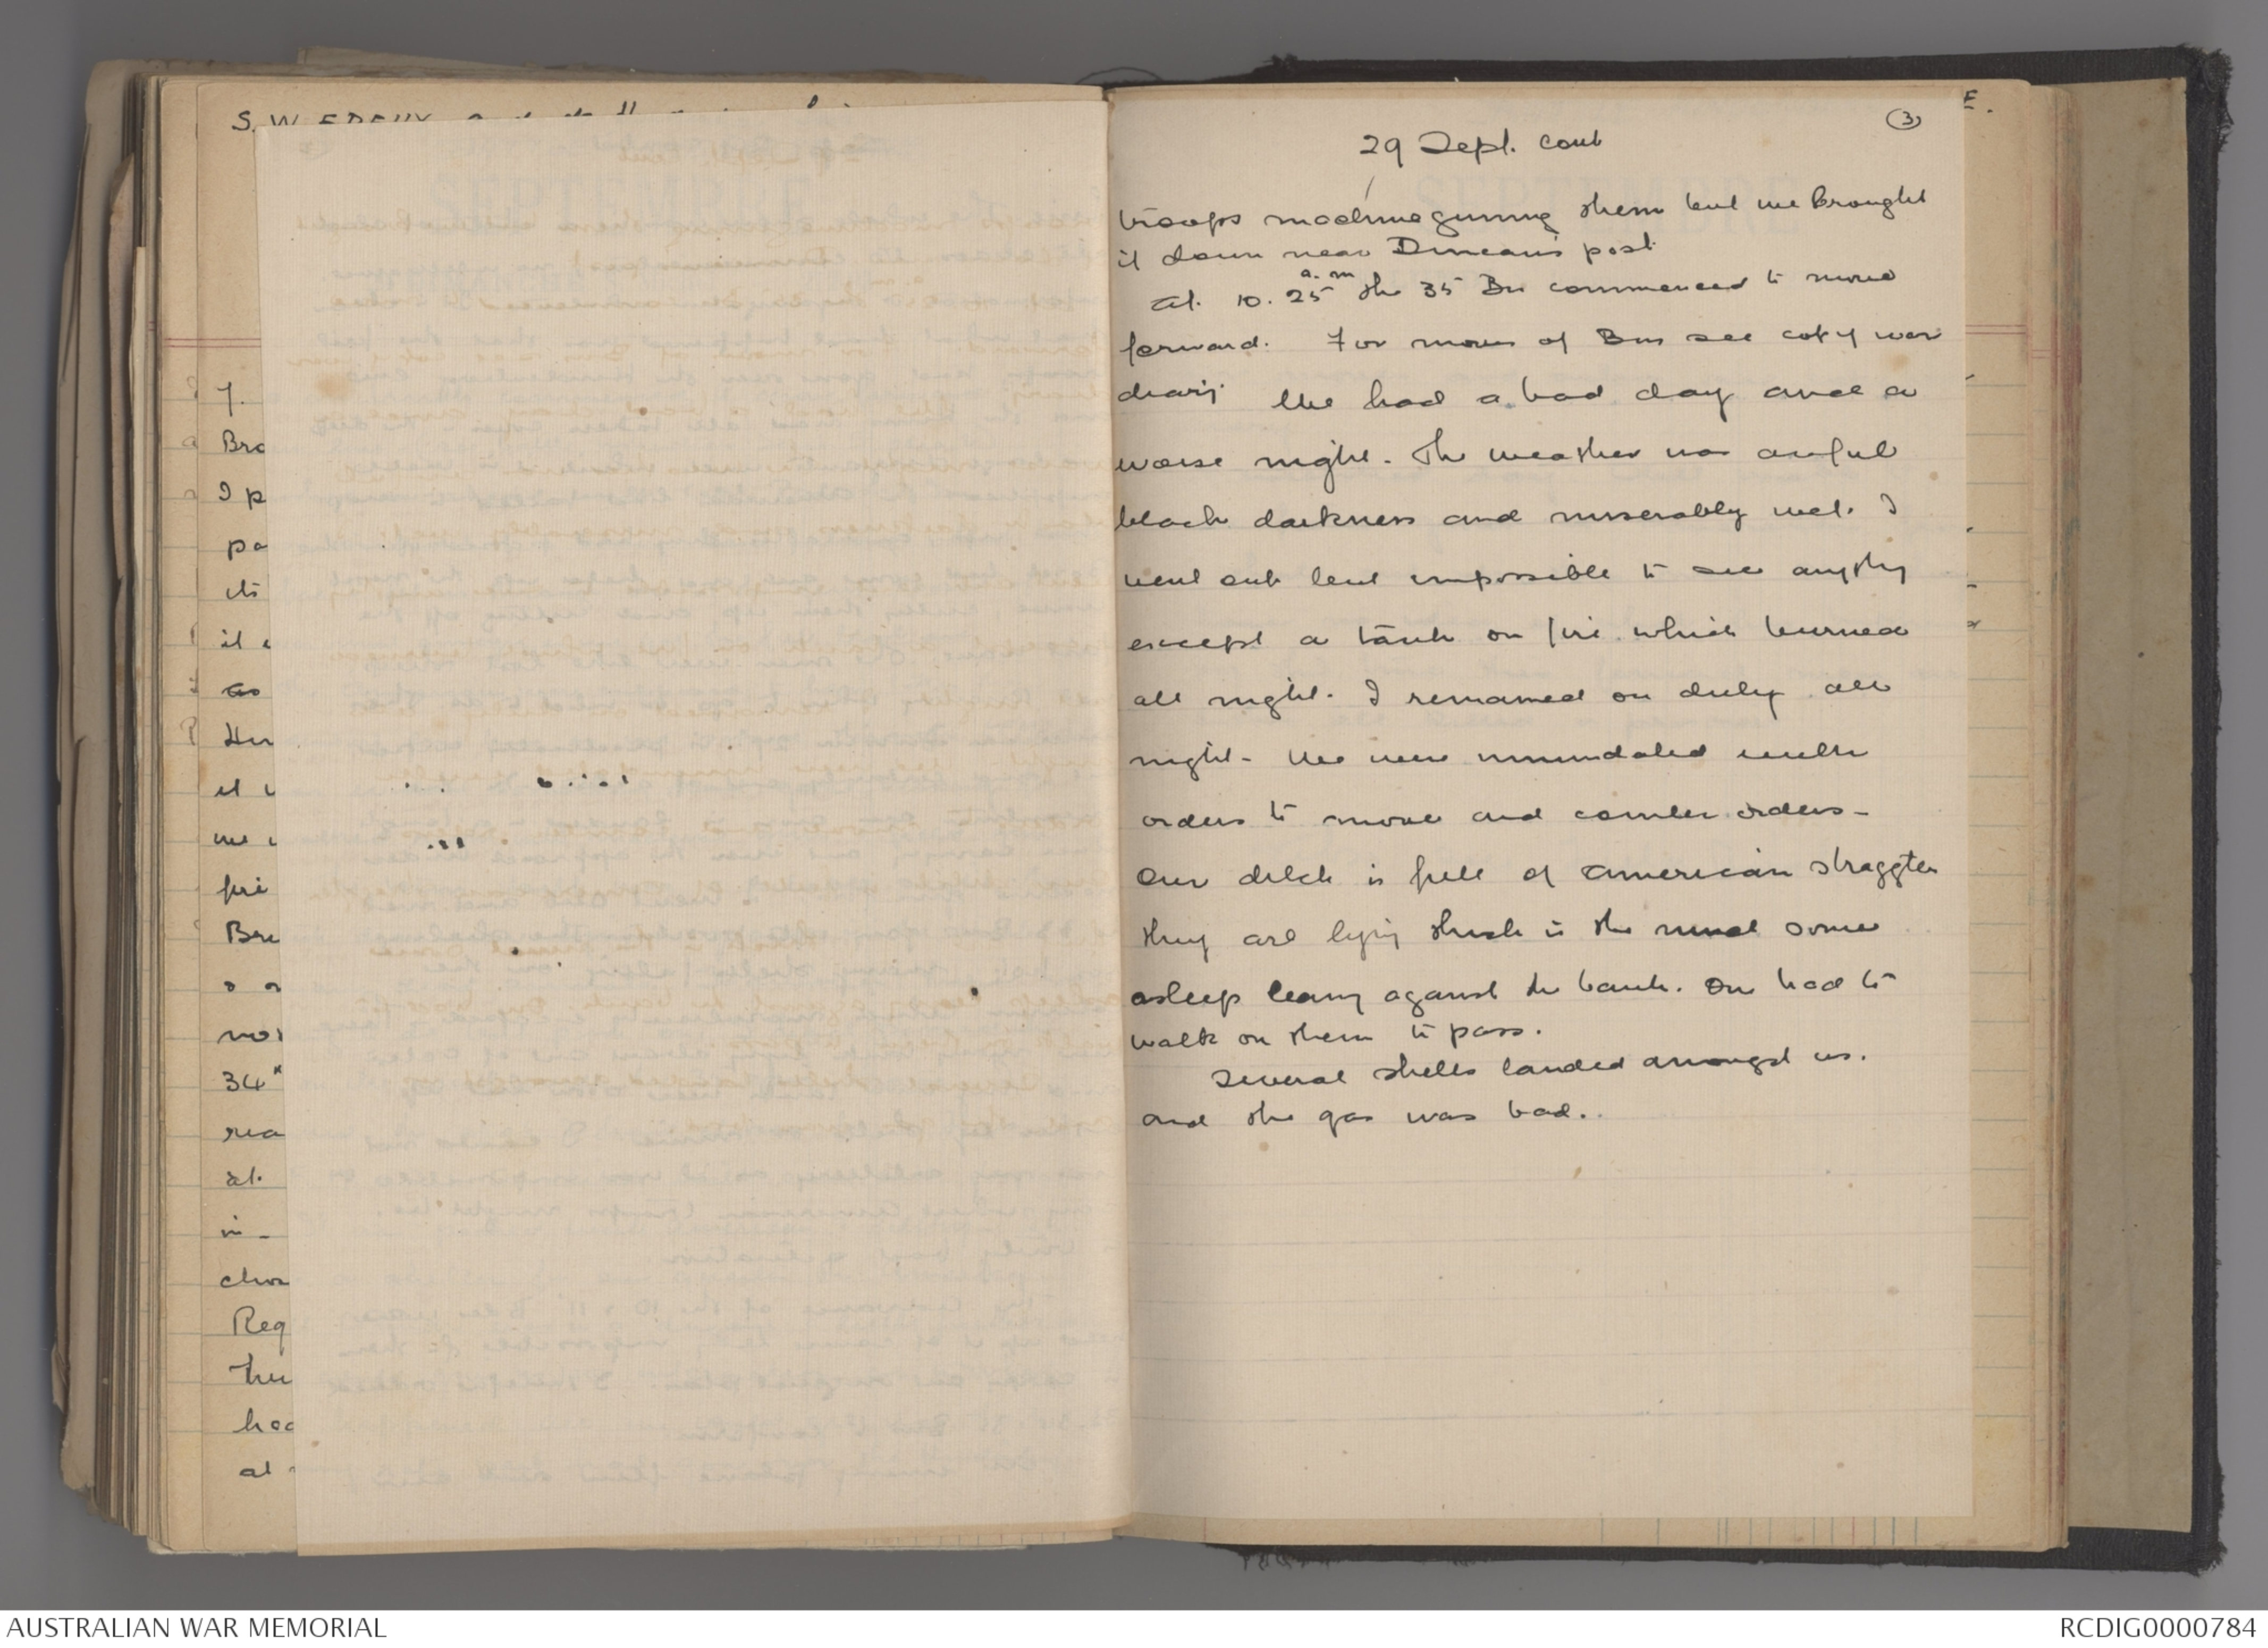 S.W.
7.
Bro
I p
pa
its
it
as
Her
it
me
fri
Bri
not
34
rea
at.
in -
Req
hea
at
3
29 Sept. cont
troops machine gunning them but we brought
it down near Duncan's post
At. 10. 25 a.m the 35 Bn commenced to move
forward. For moves of Bns see coty war
diary We had a bad day and a
worse night. The weather was awful
black darkness and miserably wet. I
went out but impossible to see anythg
except a tank on fire which burned
all night. I remained on duty all
night - We were innundated with
orders to move and counter orders -
Our ditch is full of American straggler
they are lying thick in the mud some
asleep leang against the bank. One had to
walk on them to pass.
Several shells landed amongst us.
and the gas was bad.
E.
AUSTRALIAN WAR MEMORIAL
RCDIG0000784